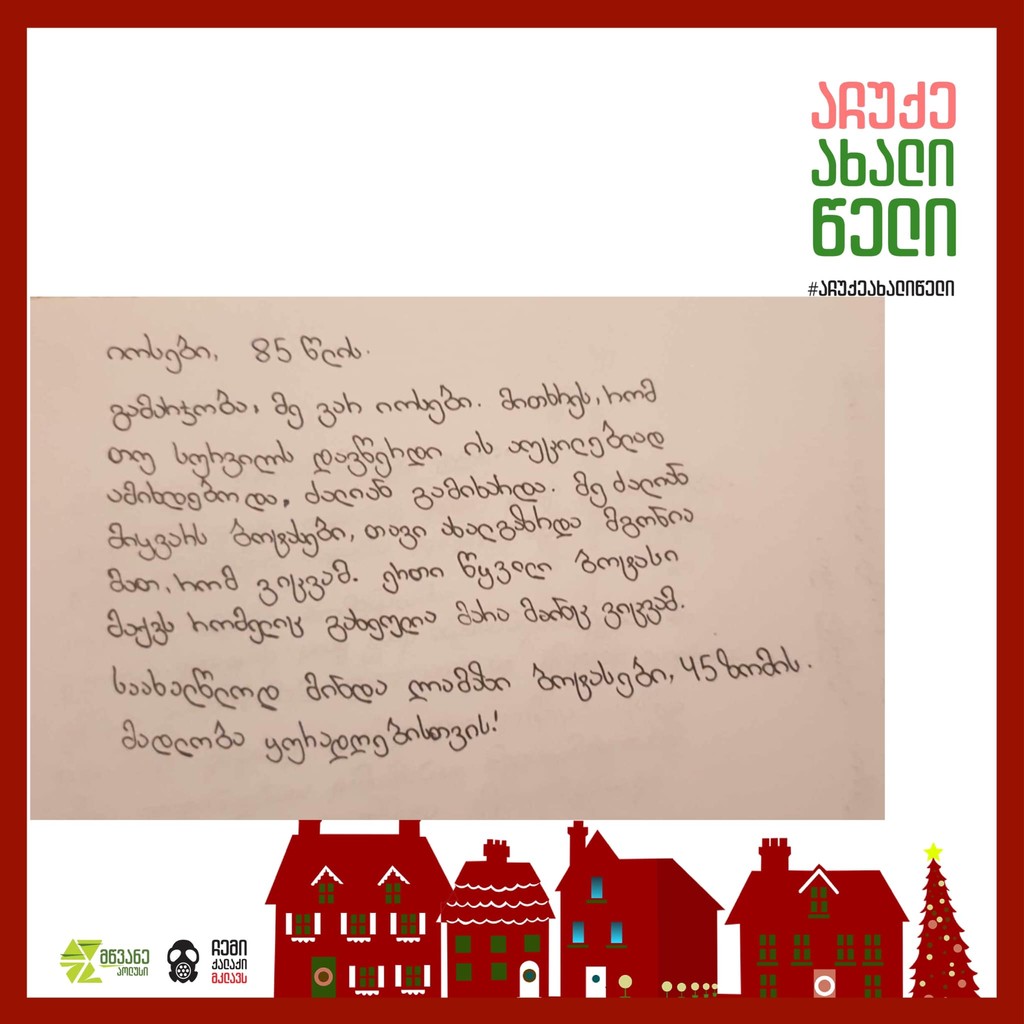 აჩუქე
ახალი
წელი
#აჩუქეახალიწელი
იოსები, 85 წლის.
გამარჯობა, მე ვარ იოსები. მითხრეს, რომ
თუ სურვილს დავწერდი ის აუცილებლად
ამიხდებოდა, ძალიან გამიხარდა. მე ძალიან
მიყვარს ბოტასები, თავი ახალგაზრდა მგონია
მათ, რომ ვიცვამ. ერთი წყვილი ბოტასი
მაქვს რომელიც გახეულა მარა მაინც ვიცვამ.
საახალწლოდ მინდა ლამაზი ბოტასები, 45 ზომის.
მადლობა ყურადღებისთვის!
მწვანე
პოლუსი
ჩემი
ქალაქი
მკლავს